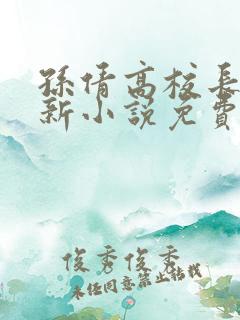 孫倩高校長
新小說免費
俊秀俊秀
未任同意禁止转载